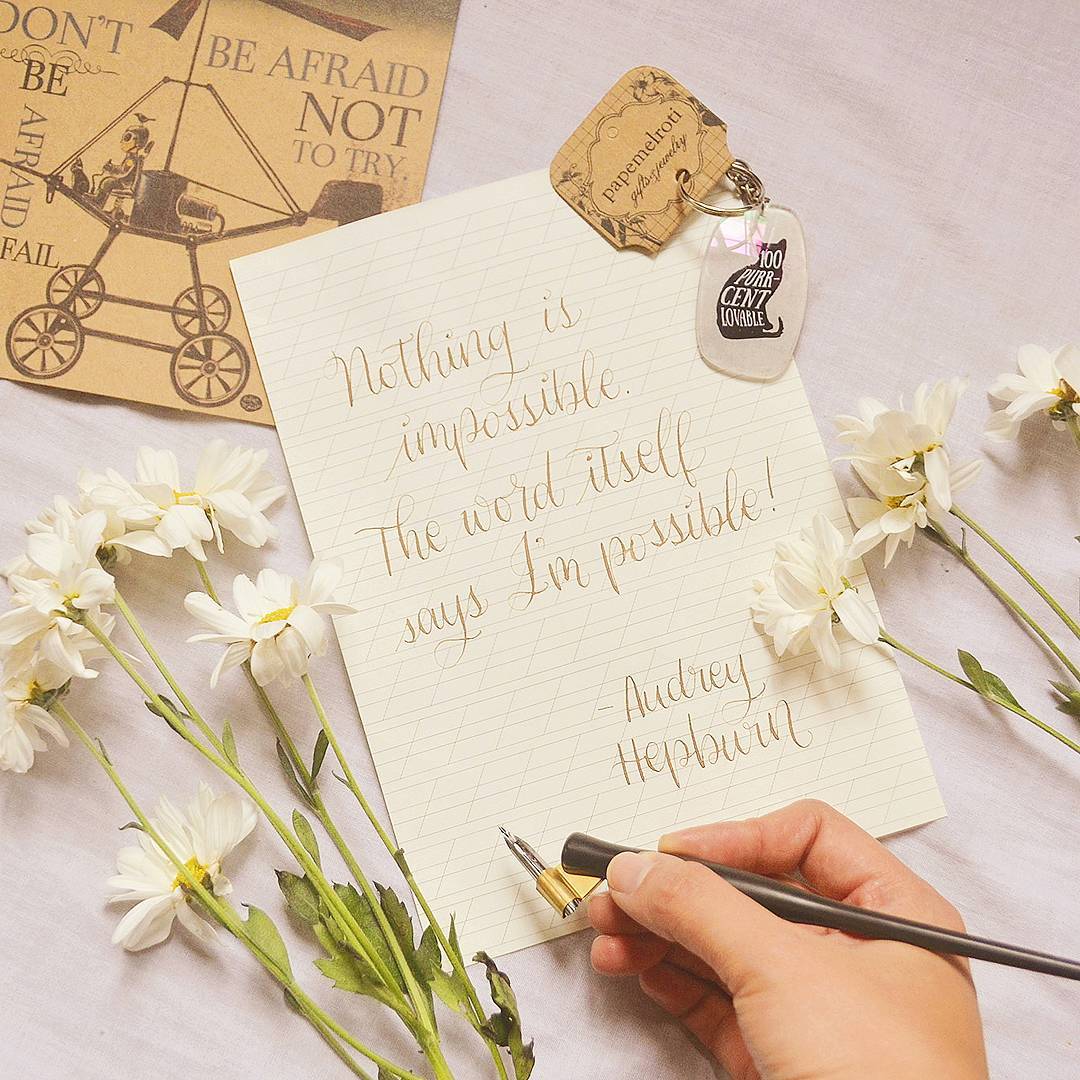 DON'T
BE
AFRAID
FAIL
BE AFRAID
NOT
TO TRY.
papemelroti
gifts & jewelry
100
PURR-
CENT
LOVABLE
Nothing is
impossible.
The word itself
says I'm possible!
- Audrey
Hepburn